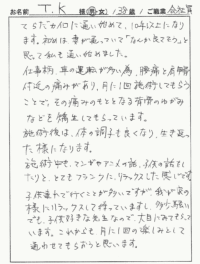 お名前 T.K 様(男・女) 38歳 / ご職業 会社員
てらだカイロに通い始めて、10年以上になり
ます。初めは妻が通っていて「なんか良さそう」と
思って私も通い始めました。
仕事柄、車の運転が多い為、腰痛と肩腰
付近の痛みがあり、月に1回施術してもらう
ことで、その痛みのもととなる背骨のゆがみ
などを矯正してもらっています。
施術後は、体の調子も良くなり、生き返っ
た様になります。
施術中も、マンガやアニメの話、子供の話をし
たりと、とてもフランクにリラックスした感じです。
子供連れで行くことが多いですが、我が家の
様にリラックスして待っていますし、多少騒い
でも、子供好きな先生なので、大目にみてもらって
います。これからも月に1回の楽しみとして
通わせてもらおうと思います。